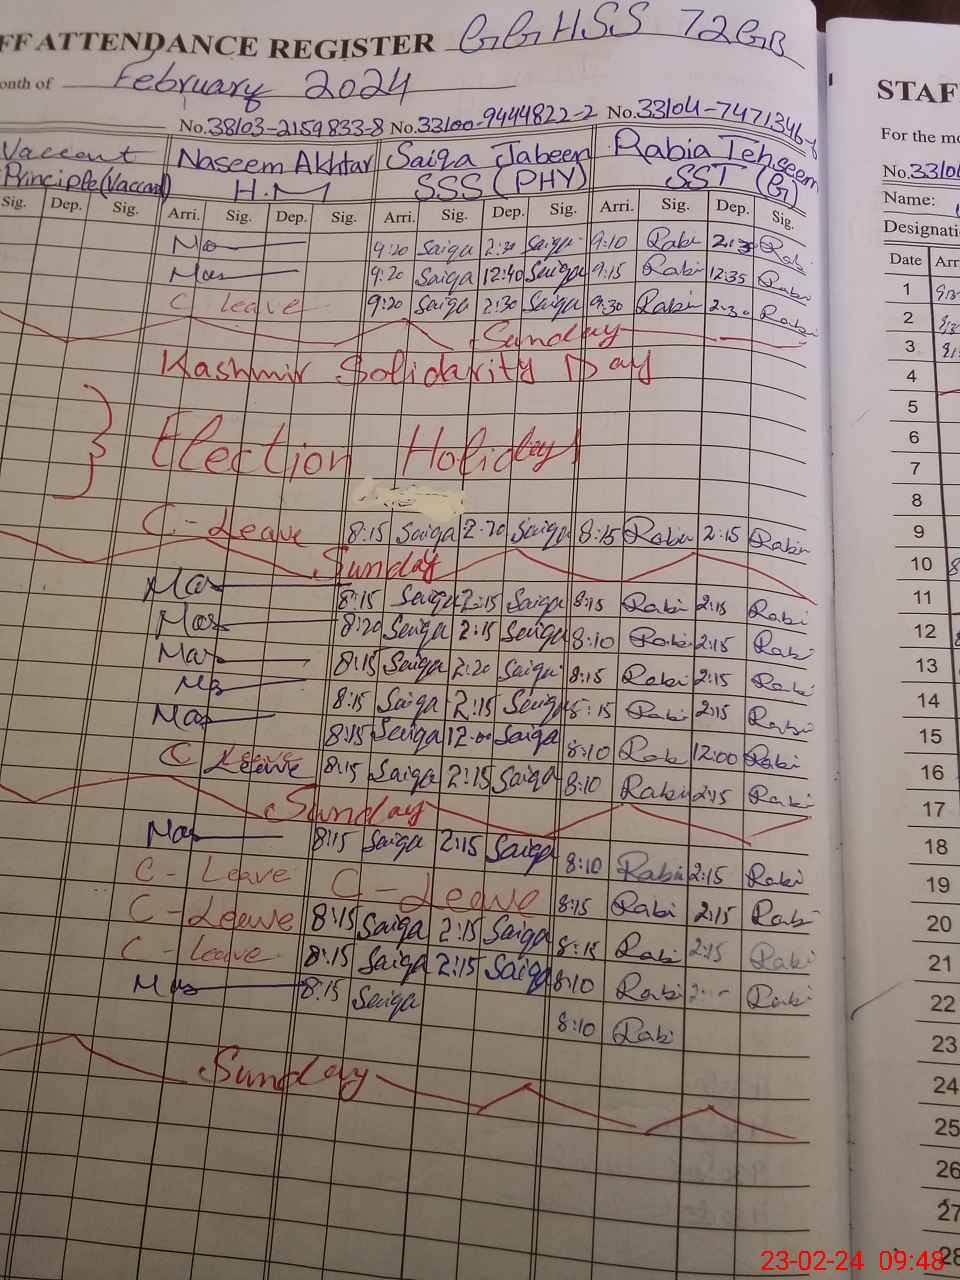 FF ATTENDANCE REGISTER GGHSS 72GB
onth of February 2024
No.38103-2159833-8 No.33100-9444822-2 No.33104-7471346-
Vaccant Naseem Akhtar Saiqa Jabeen Rabia Tehseem
Principle(Vaccant) H.M SSS (PHY) SST (G)
Sig. Dep. Sig. Arri. Sig. Dep. Sig. Arri. Sig. Dep. Sig. Arri. Sig. Dep. Sig.
9:20 Saiqa 2:30 Saiqa 9:10 Rabi 2:30 Rabi
9:20 Saiqa 12:40 Saiqa 9:15 Rabi 12:35 Rabi
C leave 9:20 Saiqa 2:30 Saiqa 9:30 Rabi 2:30 Rabi
Sunday
Kashmir Solidarity Day
Election Holidays
C-Leave 8:15 Saiqa 2:30 Saiqa 8:15 Rabi 2:15 Rabi
Sunday
8:15 Saiqa 2:15 Saiqa 8:15 Rabi 2:15 Rabi
8:20 Saiqa 2:15 Saiqa 8:10 Rabi 2:15 Rabi
8:15 Saiqa 2:20 Saiqa 8:15 Rabi 2:15 Rabi
8:15 Saiqa 2:15 Saiqa 8:15 Rabi 2:15 Rabi
8:15 Saiqa 12:00 Saiqa 8:10 Rabi 12:00 Rabi
C Leave 8:15 Saiqa 2:15 Saiqa 8:10 Rabi 2:15 Rabi
Sunday
8:15 Saiqa 2:15 Saiqa 8:10 Rabi 2:15 Rabi
C- Leave C-Leave 8:15 Rabi 2:15 Rabi
C-Leave 8:15 Saiqa 2:15 Saiqa 8:15 Rabi 2:15 Rabi
C- leave 8:15 Saiqa 2:15 Saiqa 8:10 Rabi Rabi
8:15 Saiqa 8:10 Rabi
Sunday
STAF
For the mo
No.33106
Name:
Designati
Date Arr
1
2
3
4
5
6
7
8
9
10
11
12
13
14
15
16
17
18
19
20
21
22
23
24
25
26
27
28
23-02-24 09:48